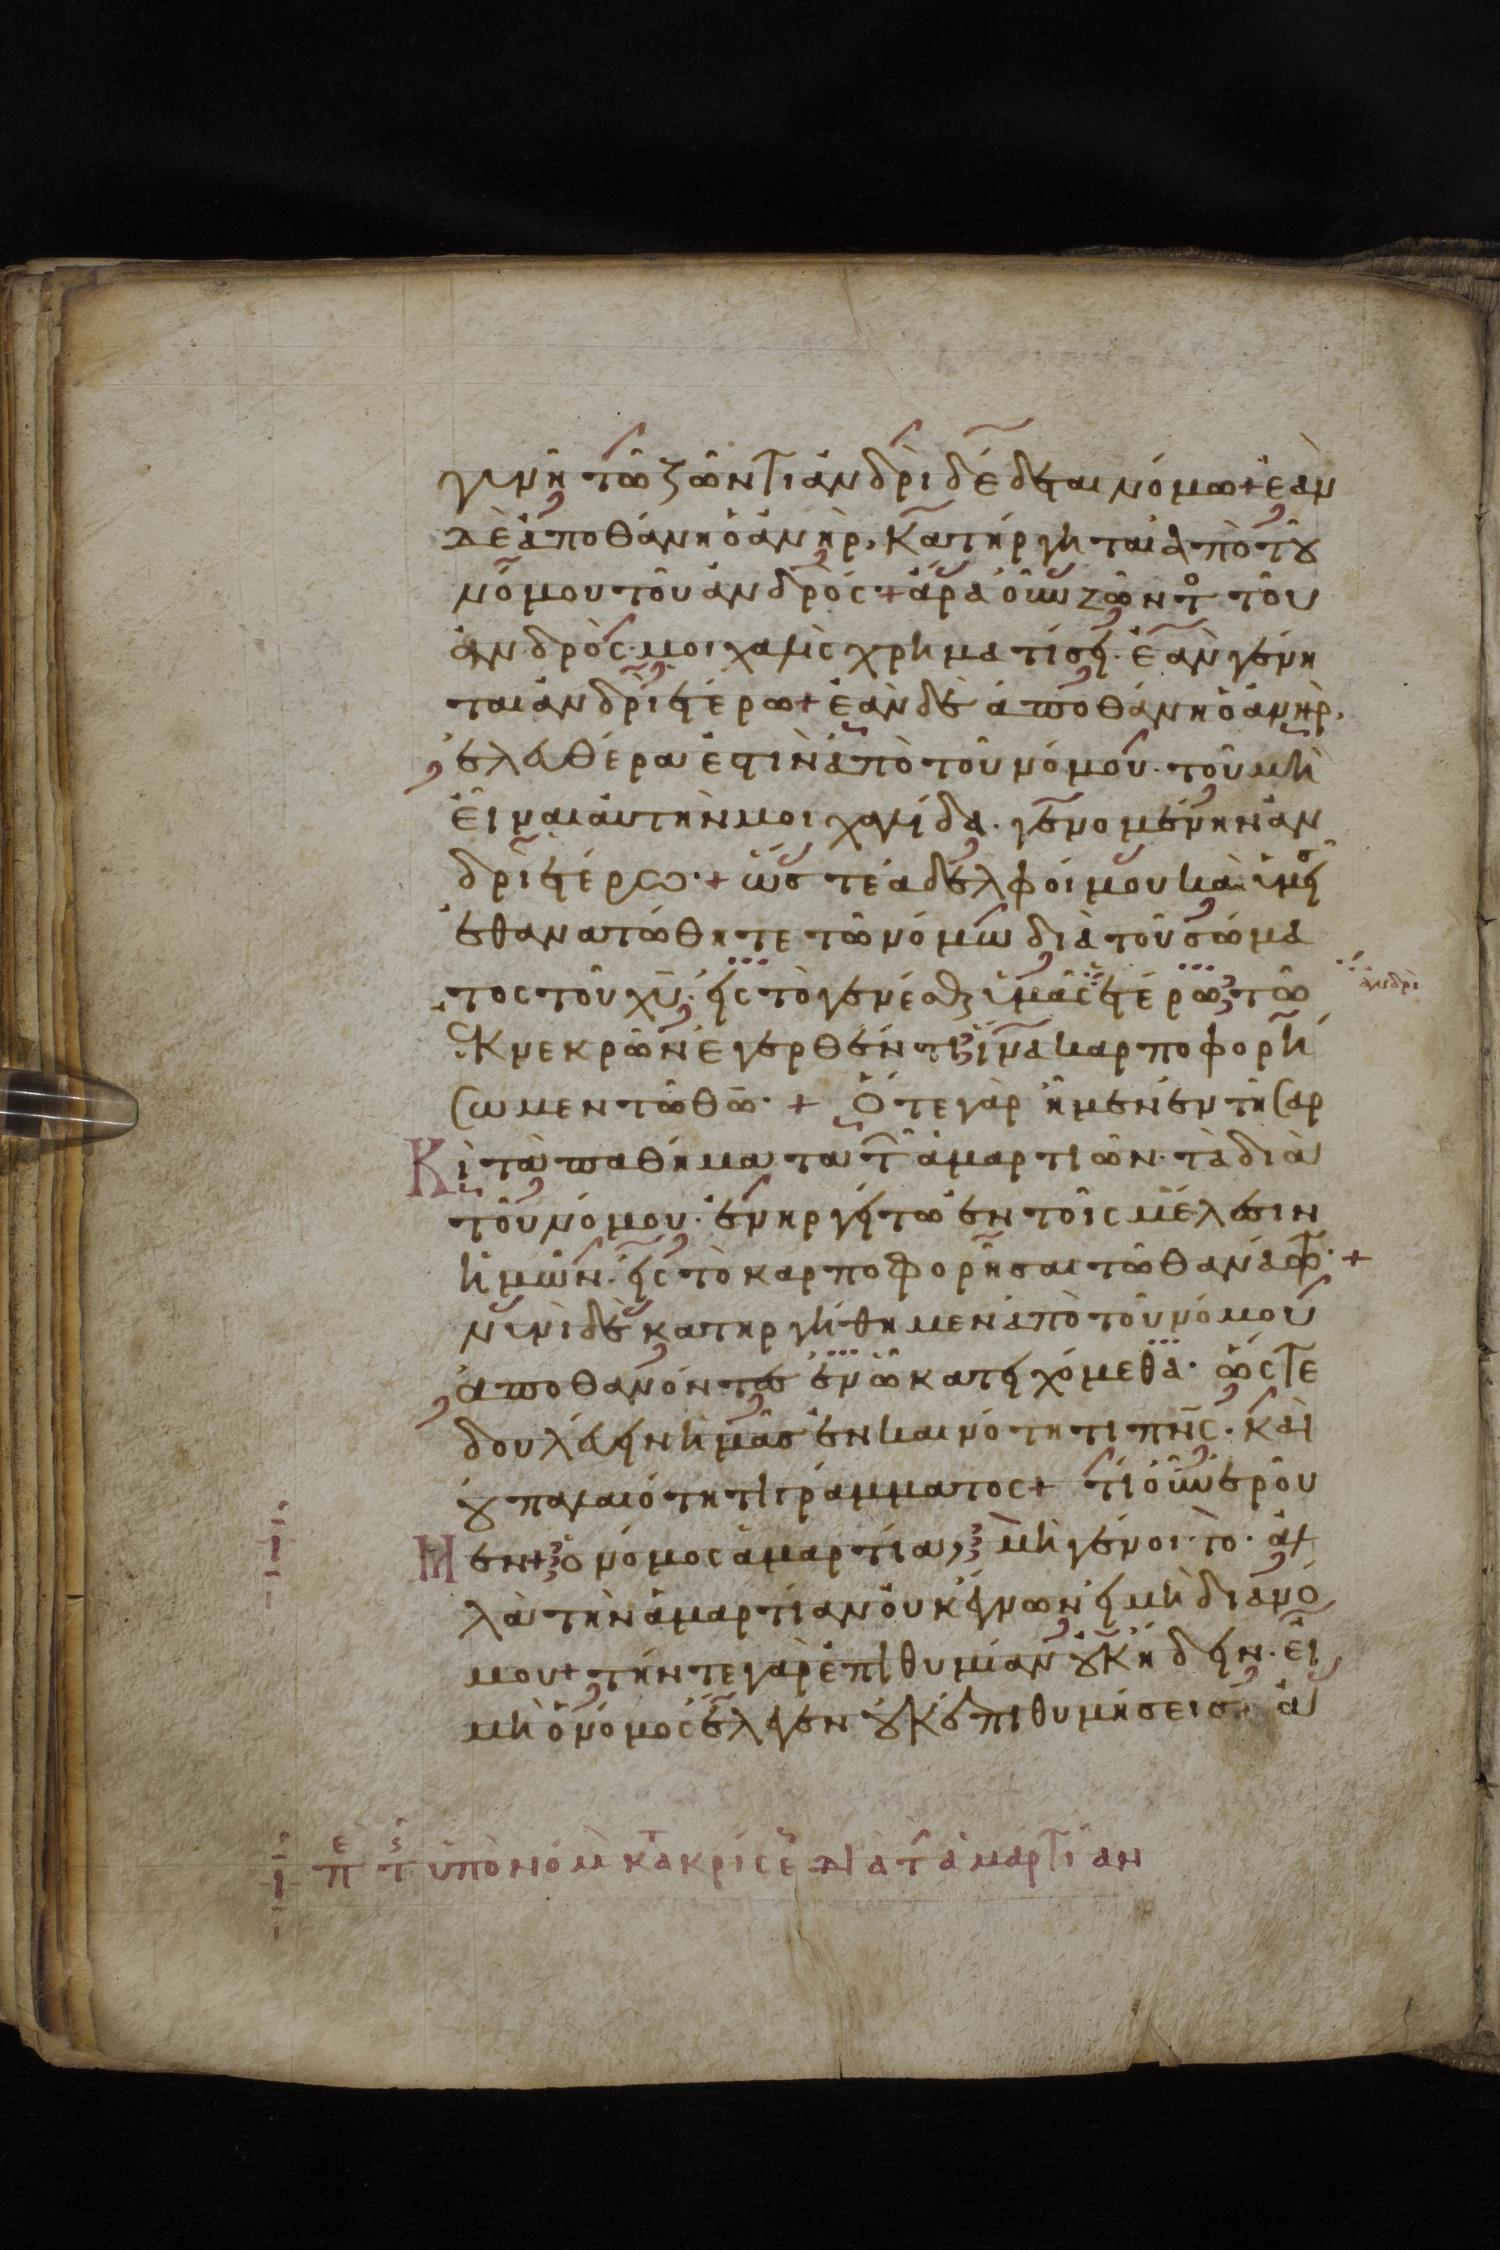 γυνὴ τῶ ζῶντι ἀνδρὶ δέδεται νόμω + ἐὰν
δὲ ἀποθάνη ὁ ἀνὴρ, κατήργηται ἀπὸ τοῦ
νόμου τοῦ ἀνδρός + ἄρα οὖν ζῶντ τοῦ
ἀνδρὸς· μοιχαλὶς χρηματίσει· ἐὰν γένη
ται ἀνδρὶ ἑτέρω + ἐὰν δὲ ἀποθάνη ὁ ἀνὴρ,
ἐλευθέρα ἐστὶν ἀπὸ τοῦ νόμου· τοῦ μὴ
εἶναι αὐτὴν μοιχαλίδα· γενομένην ἀν
δρὶ ἑτέρω· + ὥστε ἀδελφοί μου καὶ ὑμεῖ
ἐθανατώθητε τῶ νόμω διὰ τοῦ σώμα
τος τοῦ χυ· εἰς τὸ γενέσθαι ὑμᾶς ἑτέρω τῶ
ἀνδρὶ
ἐκ νεκρῶν ἐγερθέντι ἵνα καρποφορή
σωμεν τῶ θω· + Ὅτε γὰρ ἦμεν ἐν τῆ σαρ
κὶ τὰ παθήματα τ ἁμαρτιῶν· τὰ διὰ
τοῦ νόμου· ἐνηργεῖτω ἐν τοῖς μέλεσιν
ἡμῶν· εἰς τὸ καρποφορῆσαι τῶ θανάτω· +
νυνὶ δὲ κατηργήθημεν ἀπὸ τοῦ νόμου
ἀποθανόντες ἐν ὧ κατειχόμεθα· ὥστε
δουλεύειν ἡμᾶς ἐν καινότητι πνς· καὶ
οὐ παλαιότητι γράμματος + τί οὖν ἐροῦ
μεν + ὁ νόμος ἁμαρτία, μὴ γένοιτο· ἀλ
λὰ τὴν ἁμαρτίαν οὐκ ἔγνων εἰ μὴ διὰ νό
μου + τήν τε γὰρ ἐπιθυμίαν οὐκ ἤδειν· εἰ
μὴ ὁ νόμος ἔλεγεν οὐκ ἐπιθυμήσεισ· ἀ
ὑπὸ νόμ κατακρίσε ἁμαρτίαν